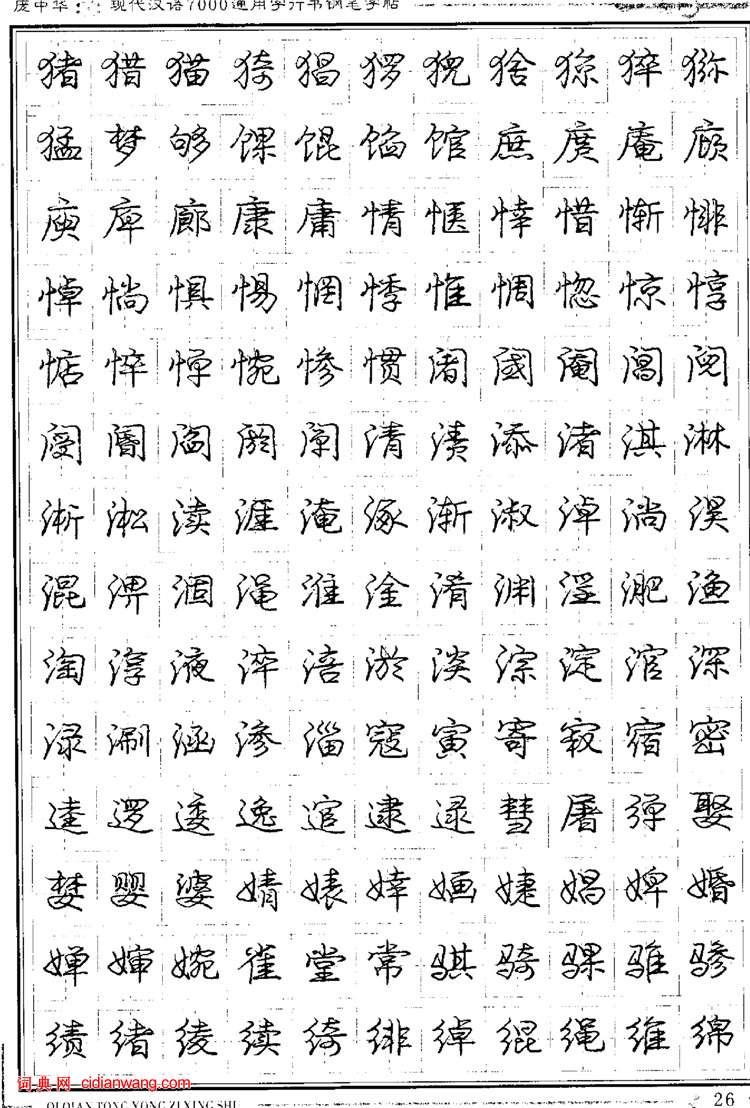 庞中华:现代汉语7000通用字行书钢笔字帖
猪猎猫猗猖猡猊猞猄猝猕
猛梦够馃馄馅馆庶庹庵庼
庾庳廊康庸情惬悻惜惭悱
悼惝惧惕惘悸惟惆惚惊惇
惦悴惮惋惨惯阇阈阉阊阋
阌阍阎阏阐清渍添渚淇淋
淅淞渎涯淹涿渐淑淖淌淏
混淠涸渑淮淦淆渊淫淝渔
淘淳液淬涪淤淡淙淀涫深
渌涮涵渗淄寇寅寄寂宿密
逵逻逶逸逭逮逯彗屠弹娶
婪婴婆婧婊婞婳婕娼婢婚
婵婶婉雀堂常骐骑骒骓骖
绩绪绫续绮绯绰绲绳维绵
词典网 cidianwang.com
QI QIAN TONG YONG ZI XING SHU
26